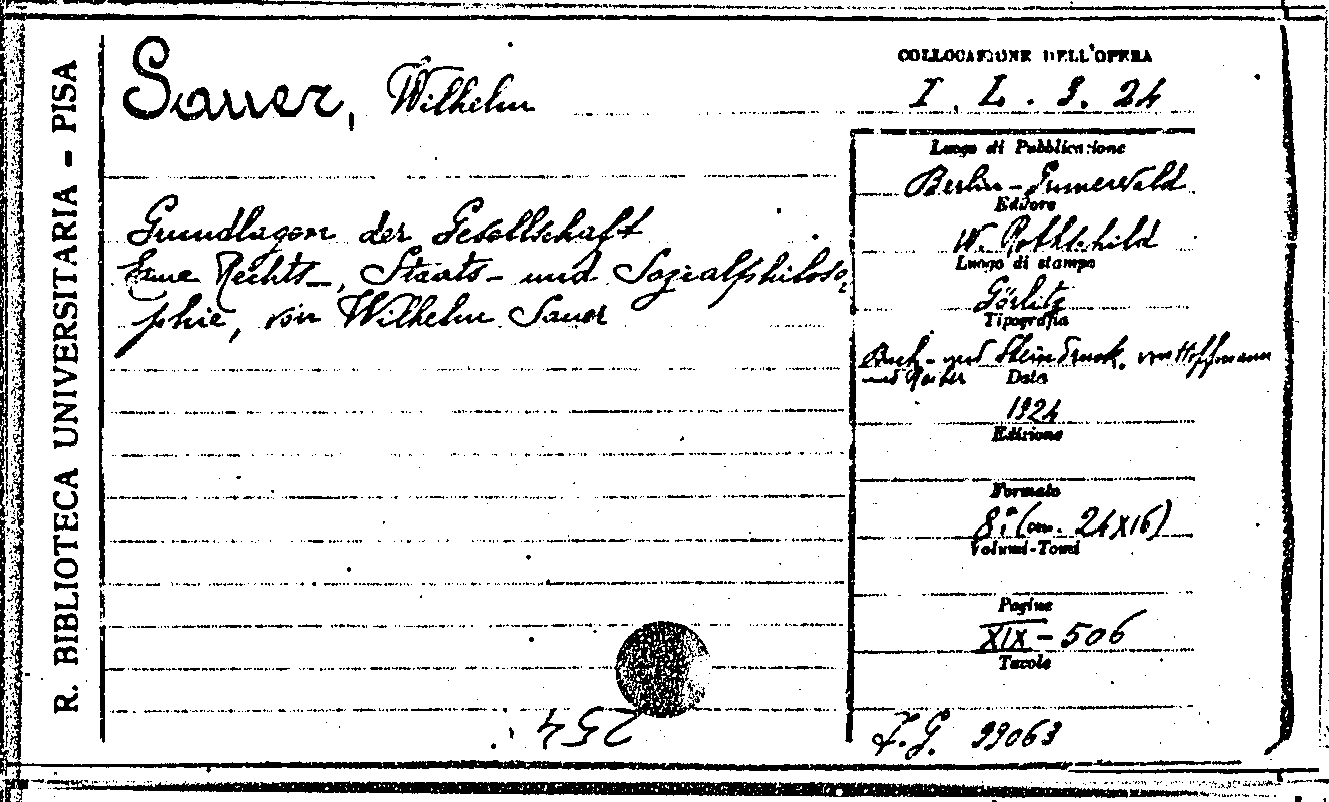 R. BIBLIOTECA UNIVERSITARIA - PISA
Sauer, Wilhelm
Grundlagen der Gesellschaft
Eine Rechts-, Staats- und Sozialphiloso
phie, von Wilhelm Sauer
COLLOCAZIONE DELL'OPERA
I. L. 3. 24
Luogo di Pubblicazione
Berlin - Grunewald
Editore
W. Rothschild
Luogo di stampa
Görlitz
Tipografia
Buch- und Steindruck. von Hoffmann
und Reiber
Data
1924
Edizione
Formato
8.° (cm. 24X16)
Volumi-Tomi
Pagine
XIX - 506
Tavole
I.G. 99063
254